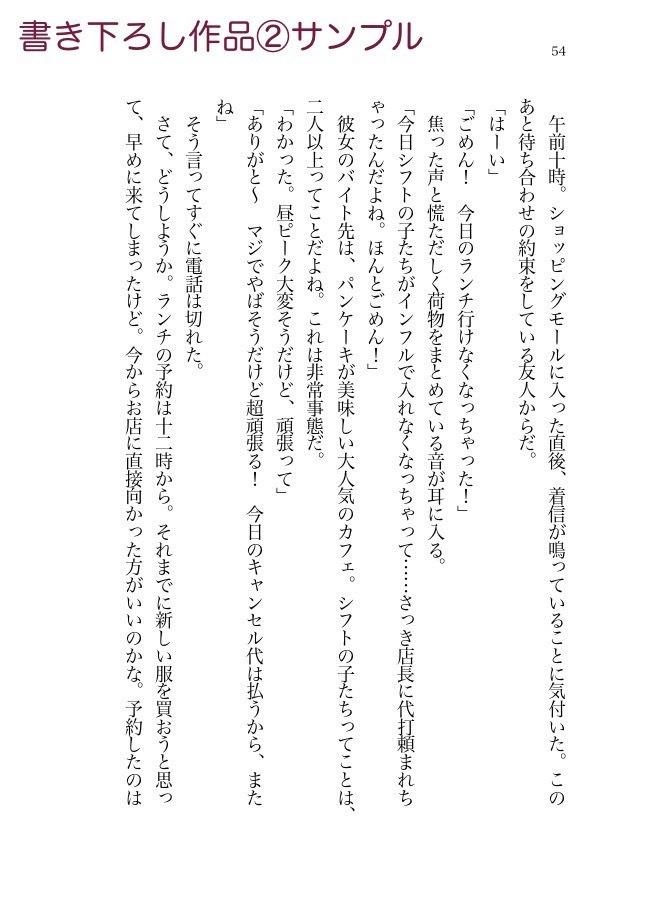 書き下ろし作品②サンプル
54
　午前十時。ショッピングモールに入った直後、着信が鳴っていることに気付いた。この
あと待ち合わせの約束をしている友人からだ。
「はーい」
「ごめん！　今日のランチ行けなくなっちゃった！」
　焦った声と慌ただしく荷物をまとめている音が耳に入る。
「今日シフトの子たちがインフルで入れなくなっちゃって……さっき店長に代打頼まれち
ゃったんだよね。ほんとごめん！」
　彼女のバイト先は、パンケーキが美味しい大人気のカフェ。シフトの子たちってことは、
二人以上ってことだよね。これは非常事態だ。
「わかった。昼ピーク大変そうだけど、頑張って」
「ありがと〜　マジでやばそうだけど超頑張る！　今日のキャンセル代は払うから、また
ね」
　そう言ってすぐに電話は切れた。
　さて、どうしようか。ランチの予約は十二時から。それまでに新しい服を買おうと思っ
て、早めに来てしまったけど。今からお店に直接向かった方がいいのかな。予約したのは